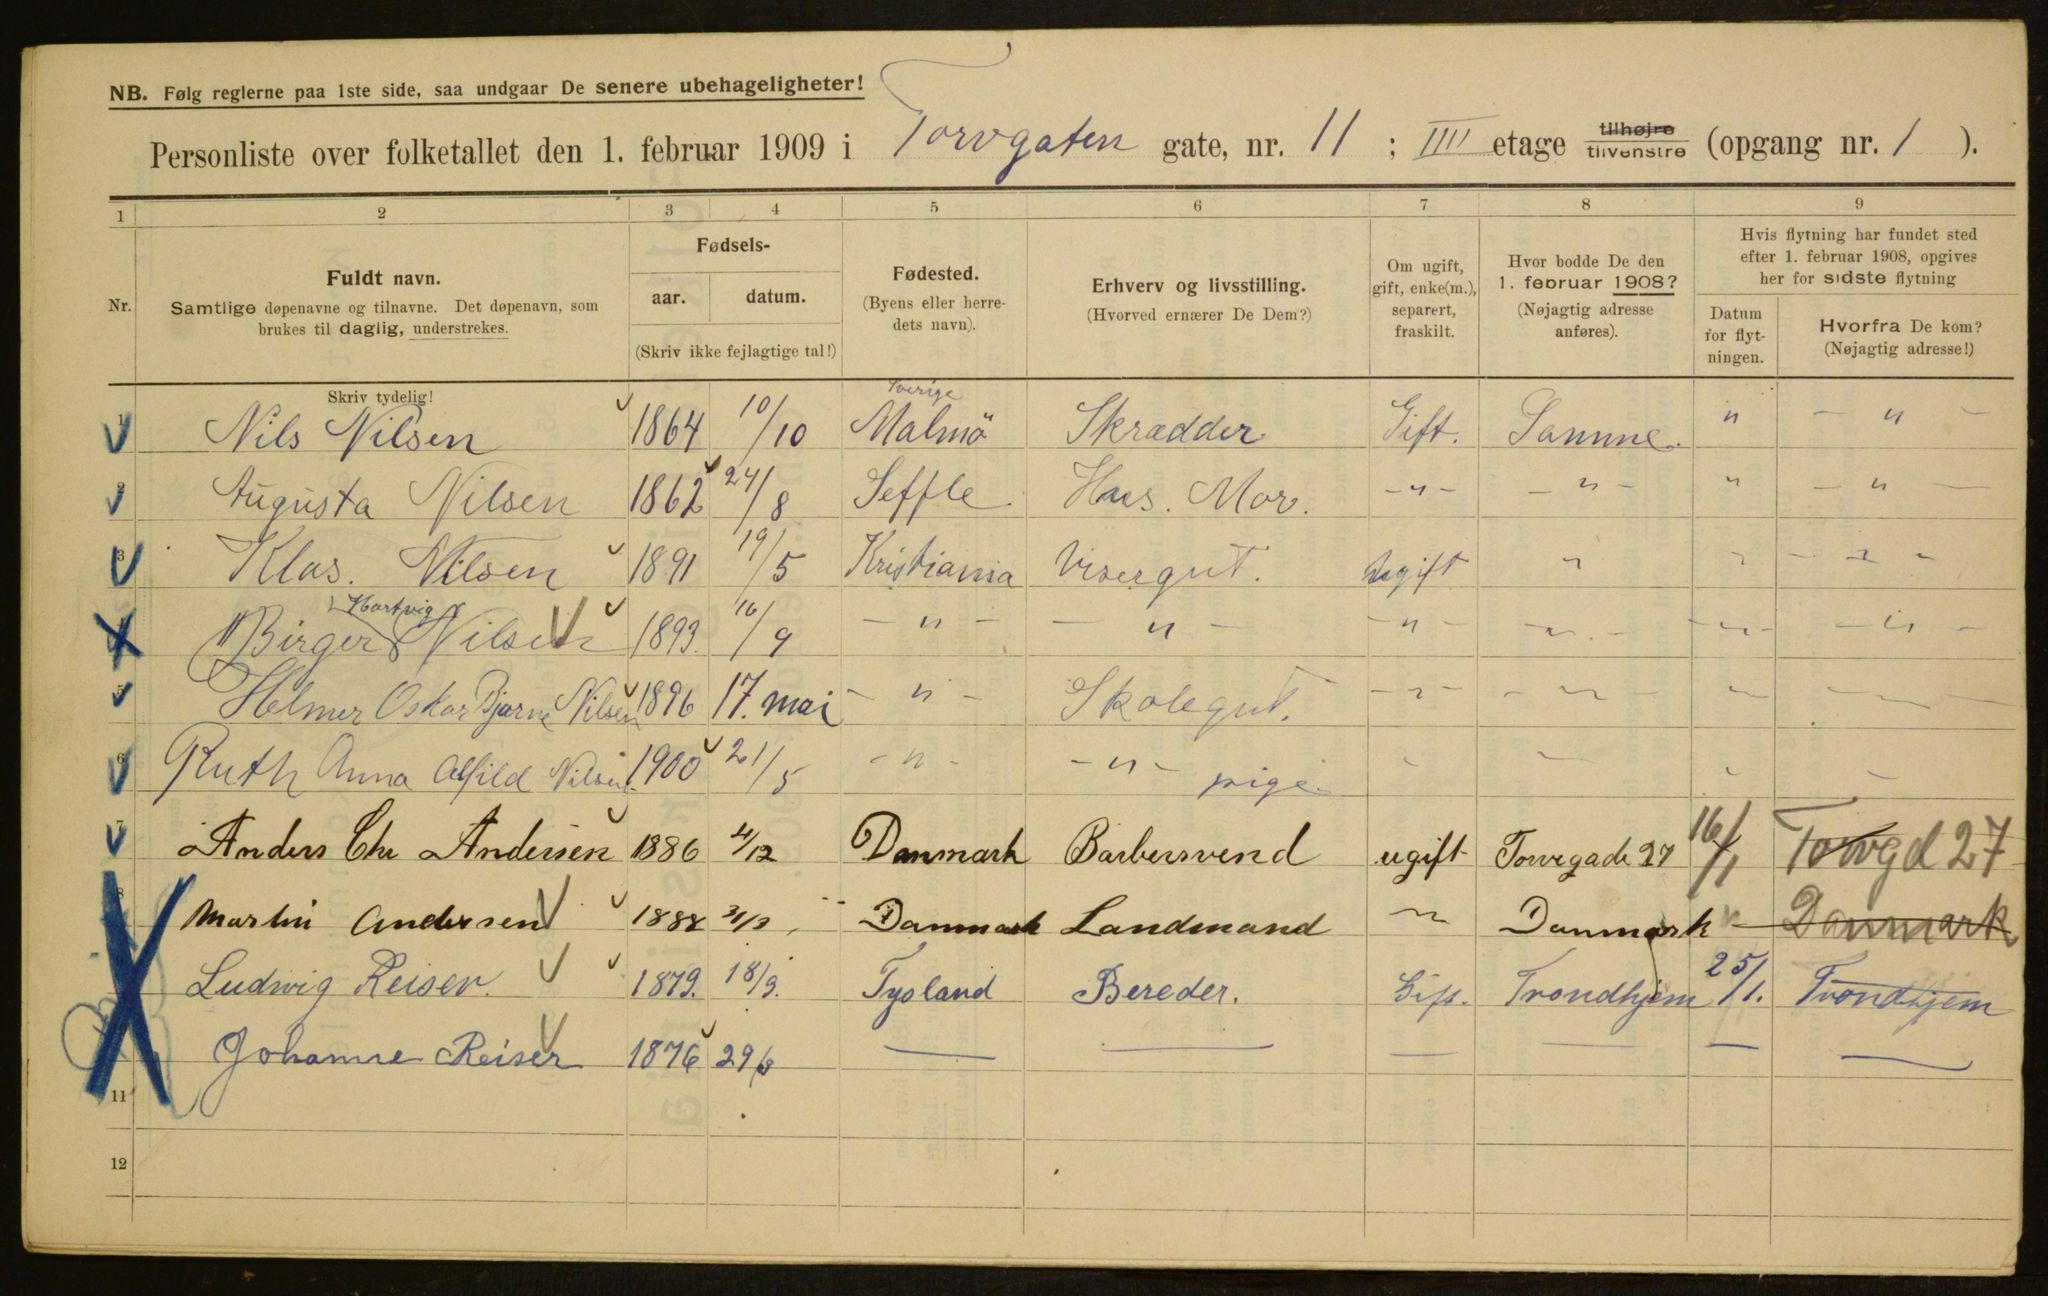 NB. Følg reglerne paa 1ste side, saa undgaar De senere ubehageligheter!
Personliste over folketallet den 1. februar 1909 i Torvgaten gate, nr. 11 ; IIII etage tilhøjre tilvenstre (opgang nr. 1 ).
1 2 3 4 5 6 7 8 9
Nr.
Fuldt navn.
Samtlige døpenavne og tilnavne. Det døpenavn, som
brukes til daglig, understrekes.
Fødsels-
aar. datum.
(Skriv ikke fejlagtige tal!)
Fødested.
(Byens eller herre-
dets navn).
Erhverv og livsstilling.
(Hvorved ernærer De Dem?)
Om ugift,
gift, enke(m.),
separert,
fraskilt.
Hvor bodde De den
1. februar 1908?
(Nøjagtig adresse
anføres).
Hvis flytning har fundet sted
efter 1. februar 1908, opgives
her for sidste flytning
Datum
for flyt-
ningen.
Hvorfra De kom?
(Nøjagtig adresse!)
Skriv tydelig!
Sverige
1 Nils Nilsen 1864 10/10 Malmö Skrædder Gift. Samme. " - " -
2 Augusta Nilsen 1862 24/8 Seffle Hus. Mor. - " - - " - " - " -
3 Klas. Nilsen 1891 19/5 Kristiania Visergut. Ugift " " - " -
Hartvig
Birger Nilsen 1893. 16/9 - " - - " - - " - - " - - " - - " -
5 Helmer Oskar Bjarne Nilsen 1896 17. mai - " - Skolegut. - " - - " - " - " -
6 Ruth Anna Alfild Nilsen 1900 21/5 - " - - " - pige. - - - -
7 Anders Chr Andersen 1886 4/12 Danmark Barbersvend ugift Torvegade 27 16/1 Torvgd 27
8 Martin Andersen 1888 Danmark Landmand " Danmark Danmark
Ludwig Reiser. 1879. 18/9. Tysland Bereder. Gift. Trondhjem 25/1. Trondhjem
Johanne Reiser 1876 — — — — — —
11
12